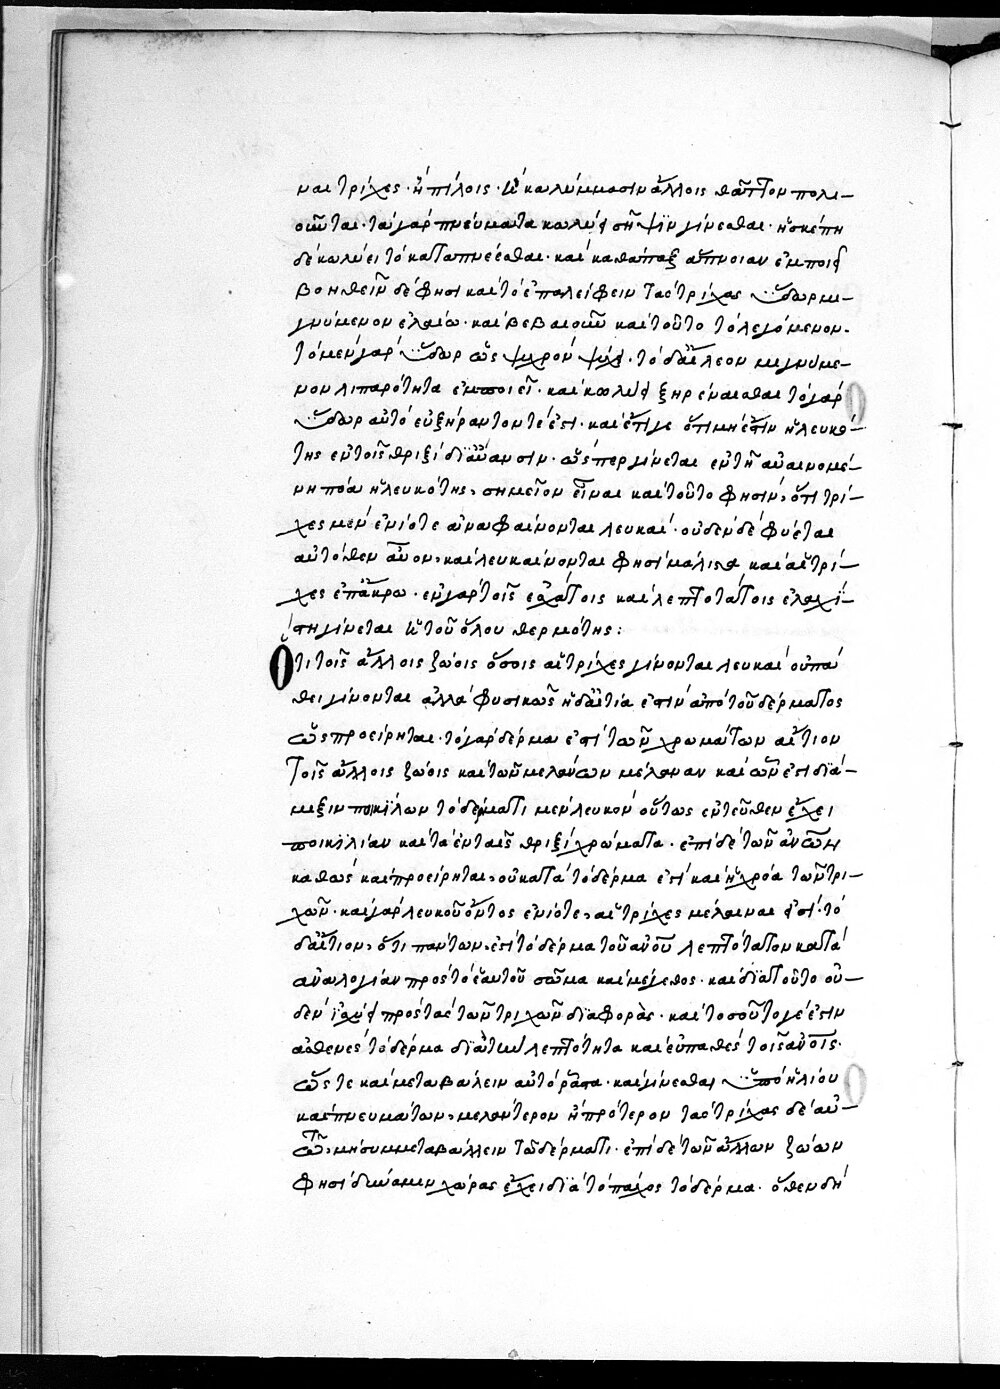 ναι τρίχες· ἢ πίλοις· ἢ καλύμμασιν ἄλλοις θᾶττον πολι–
οῦνται· τὰ γὰρ πνεύματα κωλύει σῆψιν γίνεσθαι· ἡ σκέπη
δὲ κωλύει τὸ καταπνέεσθαι· καὶ καθάπαξ ἄπνοιαν ἐμποιεῖ
βοηθεῖν δέ φησι καὶ τὸ ἐπαλείφειν τὰς τρίχας ὕδωρ με–
γνύμενον ἐλαίω· καὶ βεβαιοῦν καὶ τοῦτο τὸ λεγόμενον·
τὸ μὲν γὰρ ὕδωρ ὡς ψυχρὸν ψύχει· τὸ δ' ἔλεον μιγνύμε–
νον λιπαρότητα ἐμποιεῖ· καὶ κωλύει ξηραίνεσθαι τὸ γὰρ
ὕδωρ αὐτὸ εὐξήραντόν τέ ἐστι· καὶ ἔτι γε ὅτι μή ἐστιν ἡ λευκό–
της ἐν τοῖς θριξὶ δϊ' αὔανσιν· ὥσπερ γίνεται ἐν τῆ αὐαινομέ–
νη πόα ἡ λευκότης, σημεῖον εἶναι καὶ τοῦτο φησὶν, ὅτι τρί–
χες μὲν ἐνίοτε ἀναφαίνονται λευκαί· οὐδὲν δὲ φύεται
αὐτόθεν αὖον, καὶ λευκαίνονται φησὶ μάλιστα καὶ αἱ τρί–
χες ἐπ' ἄκρω· ἐν γὰρ τοῖς ἐσχάτοις καὶ λεπτοτάτοις ἐλαχί–
στη γίνεται ἡ τοῦ ὅλου θερμότης:
Ὅτι τοῖς ἄλλοις ζώοις ὅσοις αἱ τρίχες γίνονται λευκαὶ οὐ πά
θει γίνονται ἀλλὰ φυσικῶς ἡ δ' αἰτία ἐστὶν ἀπὸ τοῦ δέρματος
ὡς προείρηται· τὸ γὰρ δέρμα ἐστὶ τῶν χρωμάτων αἴτιον
τοῖς ἄλλοις ζώοις καὶ τῶν μελάνων μέλαναν καὶ ὧν ἐστι δϊά–
μεξιν ποικίλων τὸ δέρματι μὲν λευκὸν οὕτως ἐντεῦθεν ἔχει
ποικιλίαν καὶ τὰ ἐν ταῖς θριξὶ χρώματα· ἐπὶ δὲ τῶν ἀνῶν
καθὼς καὶ προείρηται, οὐ κατὰ τὸ δέρμα ἐστὶ καὶ ἡ χρόα τῶν τρι–
χῶν· καὶ γὰρ λευκοῦ ὄντος ἐνίοτε, αἱ τρίχες μέλαιναι εἰσί· τὸ
δ' αἴτιον, ὅτι πάντων, ἐστὶ τὸ δέρμα τοῦ ἀνοῦ λεπτότατον κατὰ
ἀναλογίαν πρὸς τὸ ἑαυτοῦ σῶμα καὶ μέγεθος· καὶ δϊὰ τοῦτο οὐ–
δὲν ἰσχύει πρὸς τὰς τῶν τριχῶν δϊαφοράς· καὶ τοσοῦτο γέ ἐστιν
ἀσθενὲς τὸ δέρμα δϊὰ τὴν λεπτότητα καὶ εὐπαθὲς τοῖς ἀνοῖς·
ὥστε καὶ μεταβάλειν αὐτὸ ῥᾶστα· καὶ γίνεσθαι ὑπὸ ἡλίου
καὶ πνευμάτων, μελάντερον ἢ πρότερον τὰς τρίχας δὲ αὐ–
τῶ, μὴ συμμεταβάλλειν τῶ δέρματι· ἐπὶ δὲ τῶν ἄλλων ζώων
φησὶ δύναμιν χώρας ἔχει δϊὰ τὸ πάχος τὸ δέρμα· ὅθεν δὴ